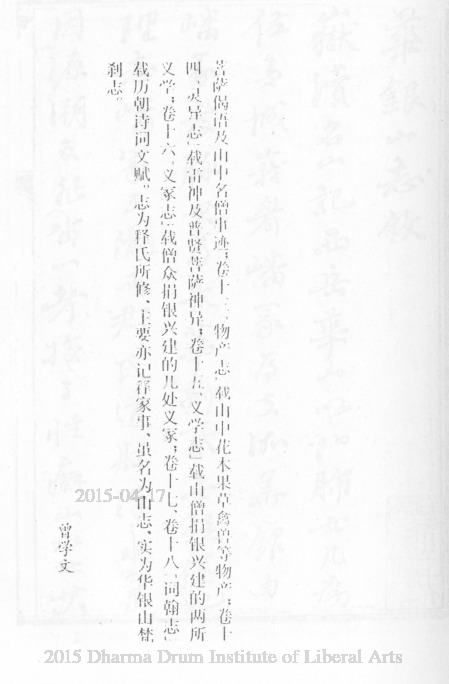 菩萨偈语及山中名僧事迹；卷十三、「物产志」载山中花木果草禽兽等物产；卷十
四「灵异志」载雷神及普贤菩萨神异；卷十五、「义学志」载山僧捐银兴建的两所
义学；卷十六、「义冢志」载僧众捐银兴建的几处义冢；卷十七、卷十八「词翰志」
载历朝诗词文赋。志为释氏所修、主要亦记释家事、虽名为山志、实为华银山梵
刹志。
曾学文
2015-04-17
2015 Dharma Drum Institute of Liberal Arts